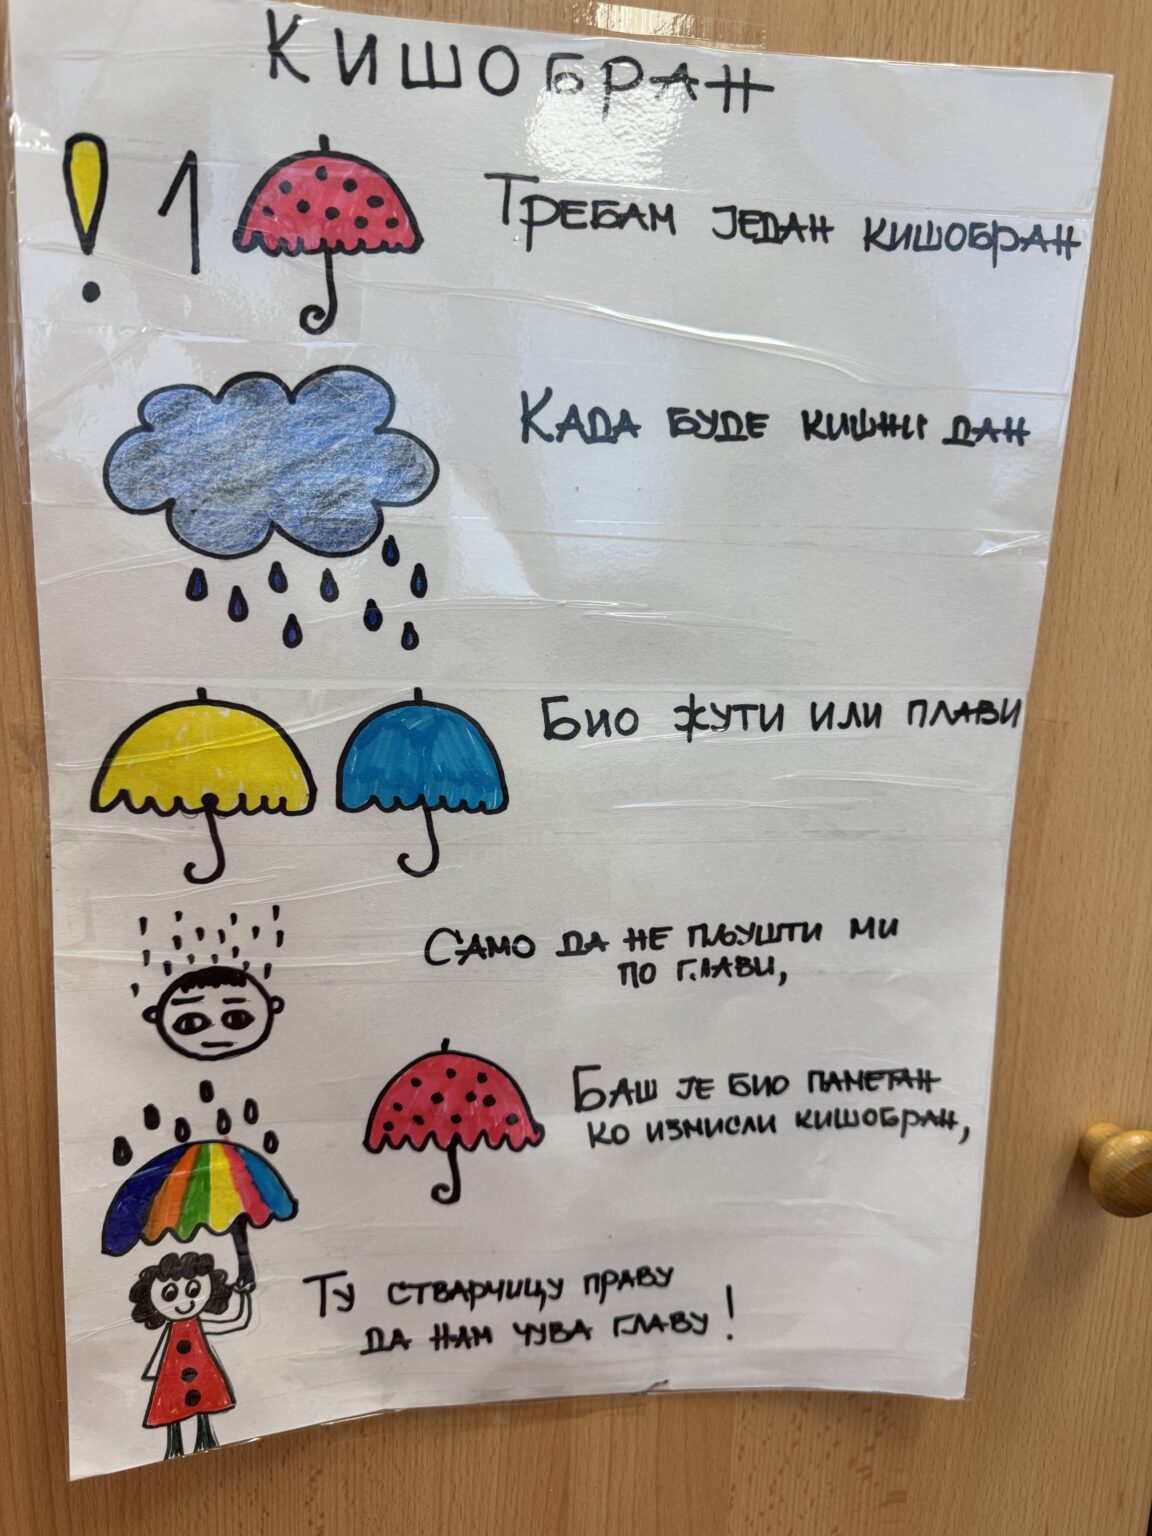 КИШОБРАН
! 1 ТРЕБАМ ЈЕДАН КИШОБРАН
КАДА БУДЕ КИШНИ ДАН
БИО ЖУТИ ИЛИ ПЛАВИ
САМО ДА НЕ ПЉУШТИ МИ
ПО ГЛАВИ,
БАШ ЈЕ БИО ПАМЕТАН
КО ИЗМИСЛИ КИШОБРАН,
ТУ СТВАРЧИЦУ ПРАВУ
ДА НАМ ЧУВА ГЛАВУ!